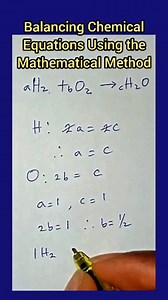 Balancing Chemical
Equations Using the
Mathematical Method
aH₂ + bO₂ → cH₂O
H: 2a = 2c
∴ a = c
O: 2b = c
a=1, c=1
2b=1 ∴ b=½
1H₂